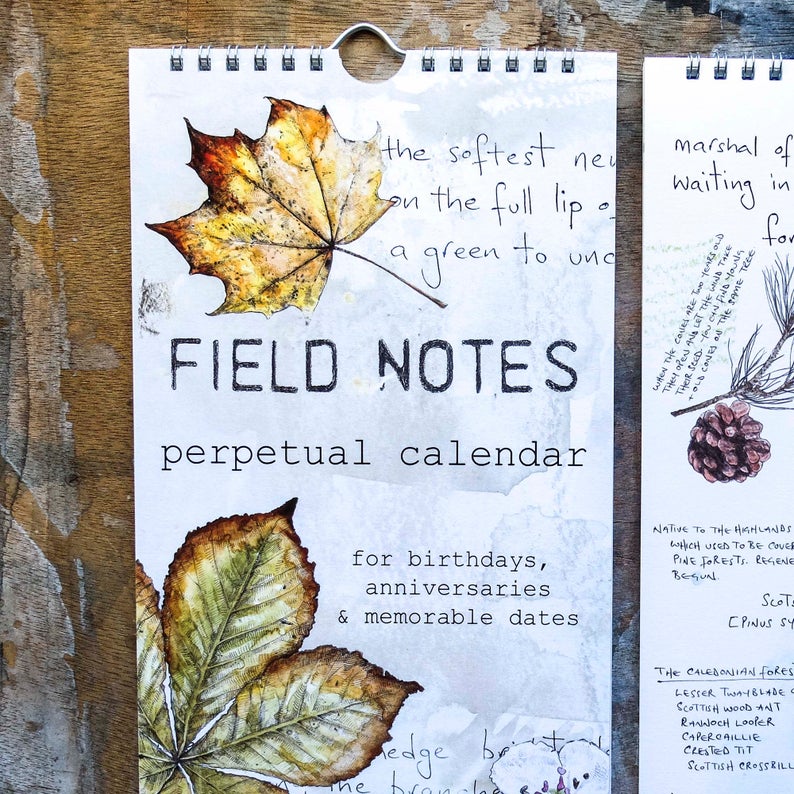 the softest new
on the full lip o
a green to unc
FIELD NOTES
perpetual calendar
for birthdays,
anniversaries
& memorable dates
the branches
marshal of
waiting in
for
WHEN THE CONES ARE TWO YEARS OLD
THEY OPEN AND LET THE WIND TAKE
THEIR SEED. YOU CAN FIND YOUNG
+ OLD CONES ON THE SAME TREE
NATIVE TO THE HIGHLANDS
WHICH USED TO BE COVER
PINE FORESTS. REGENE
BEGUN.
SCOTS
(PINUS SY
THE CALEDONIAN FORES
LESSER TWAYBLADE
SCOTTISH WOOD ANT
RANNOCH LOOPER
CAPERCAILLIE
CRESTED TIT
SCOTTISH CROSSBILL